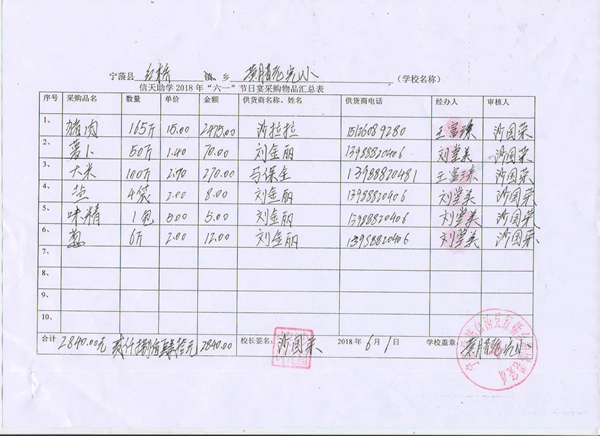 宁蒗县 红桥 镇、乡 黄腊老完小 (学校名称)
信天助学 2018 年“六一”节日宴采购物品汇总表
序号 采购品名 数量 单价 金额 供货商名称、姓名 供货商电话 经办人 审核人
1、 猪肉 165斤 15.00 2475.00 沙拉拉 王富珠 沙国荣
2、 萝卜 50斤 1.40 70.00 刘金丽 13988820406 刘棠美 沙国荣
3、 大米 100斤 2.70 270.00 马保金 13988820481 王富珠 沙国荣
4、 盐 4袋 2.00 8.00 刘金丽 13988820406 刘棠美 沙国荣
5、 味精 1包 5.00 刘金丽 13988820406 刘棠美 沙国荣
6、 葱 6斤 2.00 12.00 刘金丽 13988820406 刘棠美 沙国荣
7、
8、
9、
10、
合计 2840.00元 贰仟捌佰肆拾元 2840.00 校长签名: 沙国荣 2018 年 6 月 1 学校盖章: 黄腊老完小